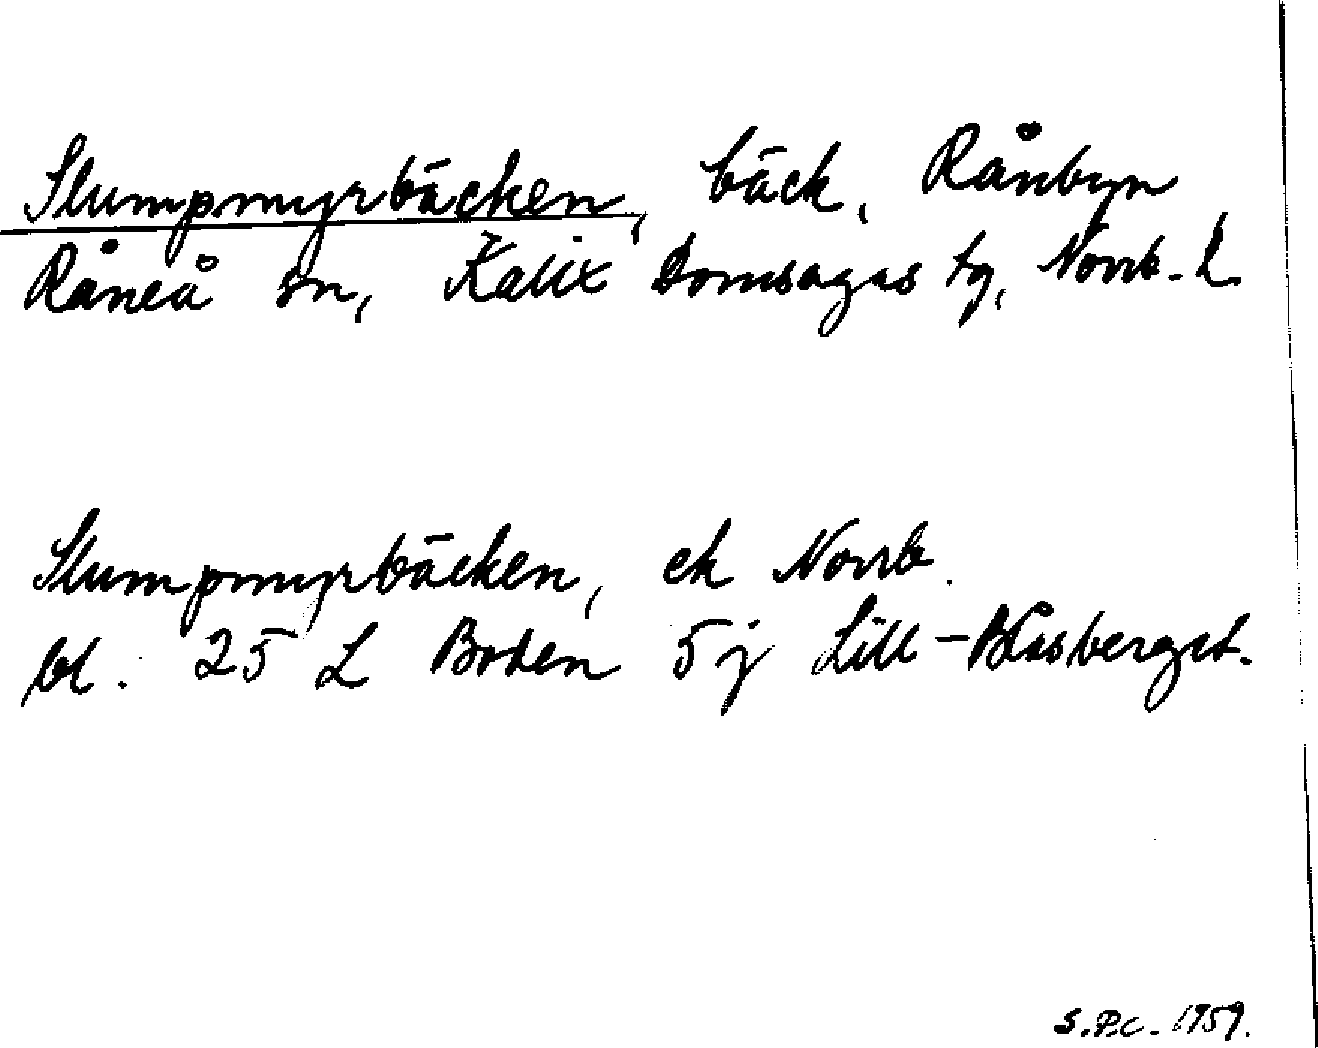 Slumpmyrbäcken, bäck, Rånbyn
Råneå sn, Kalix Domsagas tg, Norrb. L
Slumpmyrbäcken, ek Norrb.
bl. 25 L Boden 5j Lill-Blåsberget.
S.P.C. 1959.